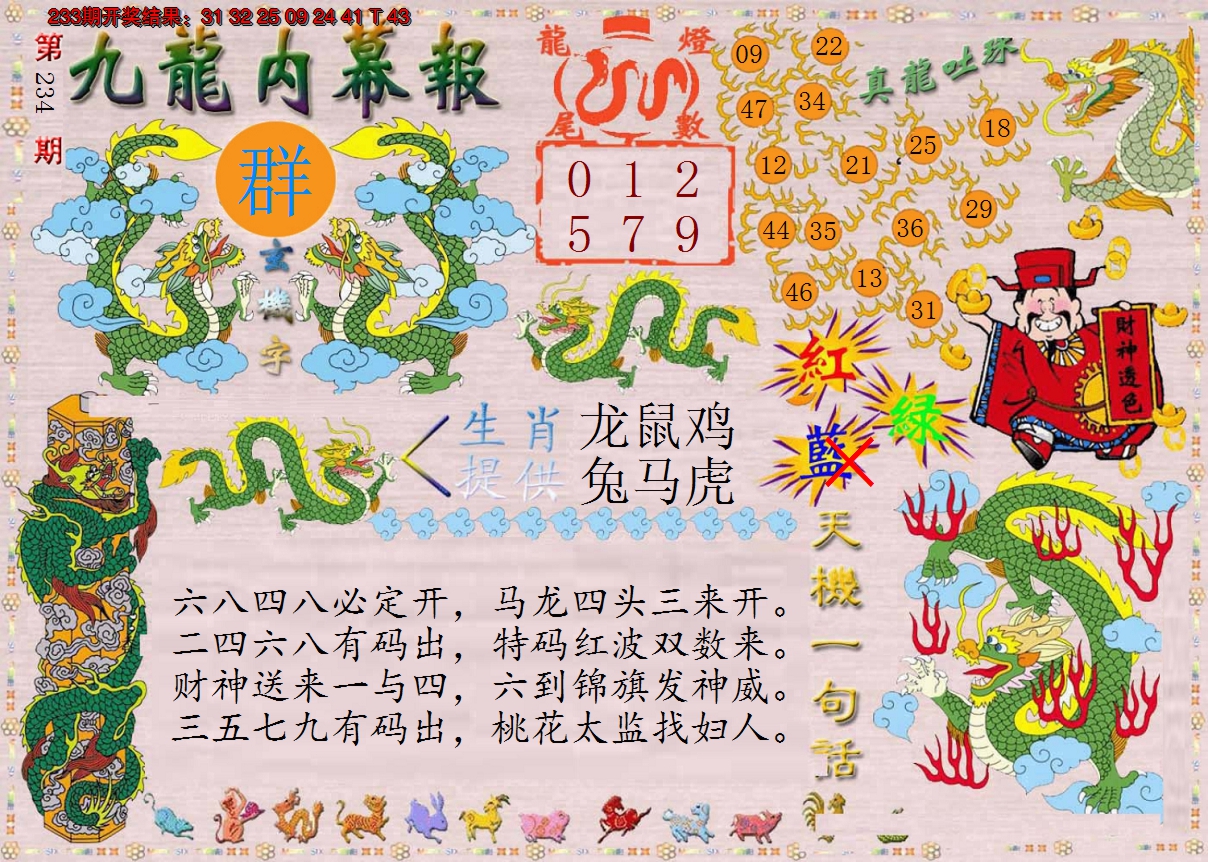 233期开奖结果：31 32 25 09 24 41 T 43
第234期
九龍内幕報
群
玄機字
龍燈
尾數
0 1 2
5 7 9
真龍吐珠
09 22
47 34
12 21 25 18
44 35 36 29
46 13 31
紅
綠
藍
財神透色
生肖 龙鼠鸡
提供 兔马虎
天機一句话
六八四八必定开，马龙四头三来开。
二四六八有码出，特码红波双数来。
财神送来一与四，六到锦旗发神威。
三五七九有码出，桃花太监找妇人。